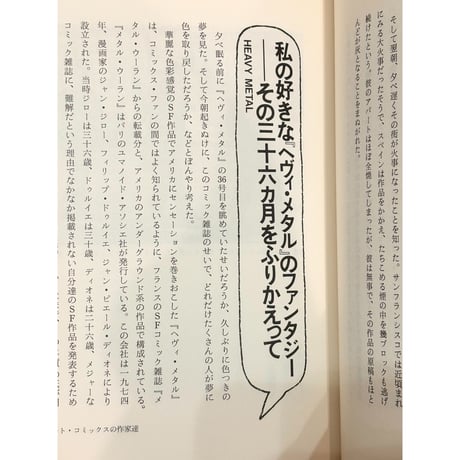 そして翌朝、夕べ遅くその街が火事になったことを知った。サンフランシスコでは近頃まれ
にみる大火事だったそうで、スペインは作品をかかえ、たちこめる煙の中を幾ブロックも逃げ
続けたという。彼のアパートはほぼ全焼してしまったが、彼は無事で、その作品の原稿もほと
んどが灰となることをまぬがれた。
私の好きな『ヘヴィ・メタル』のファンタジー
——その三十六カ月をふりかえって
HEAVY METAL
夕べ眠る前に『ヘヴィ・メタル』の36号目を眺めていたせいだろうか、久しぶりに色つきの
夢を見た。そして今朝起きぬけに、このコミック雑誌のせいで、どれだけたくさんの人が夢に
色を取り戻しただろうか、などとぼんやり考えた。
華麗な色彩感覚のSF作品でアメリカにセンセーションを巻きおこした『ヘヴィ・メタル』
は、コミックス・ファンの間ではよく知られているように、フランスのSFコミック雑誌『メ
タル・ウーラン』からの転載分と、アメリカのアンダーグラウンド系の作品で構成されている。
『メタル・ウーラン』はパリのユマノイド・アソシエ社が発行している。この会社は一九七四
年、漫画家のジャン・ジロー、フィリップ・ドゥルイエ、ジャン・ピエール・ディオネにより
設立された。当時ジローは三十六歳、ドゥルイエは三十歳、ディオネは二十六歳、メジャーな
コミック雑誌に、難解だという理由でなかなか掲載されない自分達のSF作品を発表するため
ト・コミックスの作家達